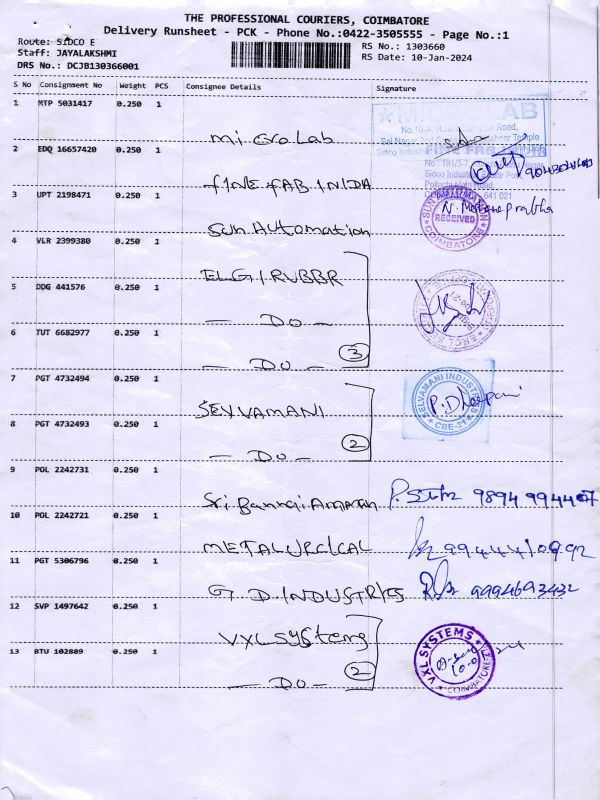 THE PROFESSIONAL COURIERS, COIMBATORE
Delivery Runsheet - PCK - Phone No.:0422-3505555 - Page No.:1
Route: SIDCO E
Staff: JAYALAKSHMI
DRS No.: DCJB130366001
RS No.: 1303660
RS Date: 10-Jan-2024
S No Consignment No Weight PCS Consignee Details Signature
1 MTP 5031417 0.250 1
Mi cro Lab
2 EDQ 16657420 0.250 1
FINE FAB INIDA
3 UPT 2198471 0.250 1
Sun Automation
SUN AUTOMATION
RECEIVED
COIMBATORE
4 VLR 2399380 0.250 1
ELGI RUBBR
5 DDG 441576 0.250 1
- Do -
6 TUT 6682977 0.250 1
- Do -
3
7 PGT 4732494 0.250 1
SELVAMANI
SELVAMANI INDUSTRIES
CBE-21
8 PGT 4732493 0.250 1
- Do -
2
9 POL 2242731 0.250 1
Sri Bannari Amman
10 POL 2242721 0.250 1
METALURGICAL
11 PGT 5306796 0.250 1
G.D. INDUSTRIES 9994693432
12 SVP 1497642 0.250 1
VXL Systems
VXL SYSTEMS
COIMBATORE
13 BTU 102889 0.250 1
- Do -
2